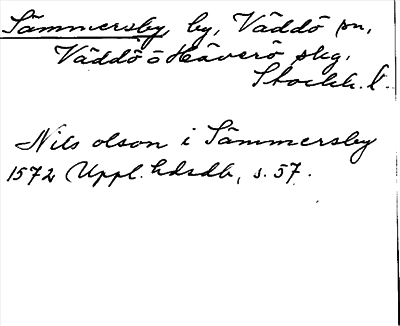 Sämmersby, by, Väddö sn,
Väddö o Häverö skg.
Stockh. l.
Nils olson i Sämmersby
1572 Uppl. hdsdb, s. 57.